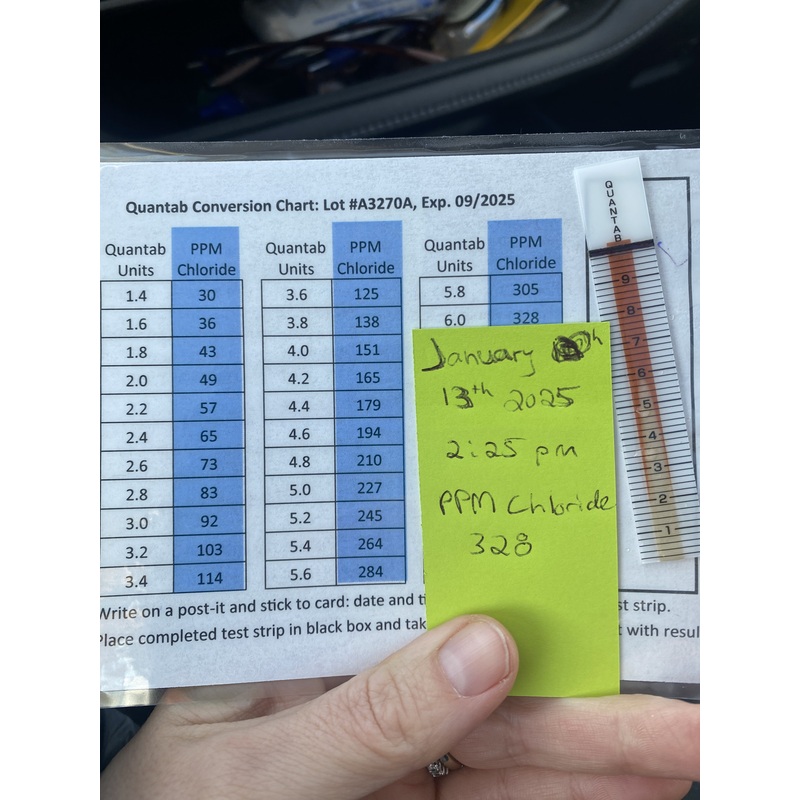 Quantab Conversion Chart: Lot #A3270A, Exp. 09/2025
Quantab Units PPM Chloride Quantab Units PPM Chloride Quantab Units PPM Chloride
1.4 30 3.6 125 5.8 305
1.6 36 3.8 138 6.0 328
1.8 43 4.0 151
2.0 49 4.2 165
2.2 57 4.4 179
2.4 65 4.6 194
2.6 73 4.8 210
2.8 83 5.0 227
3.0 92 5.2 245
3.2 103 5.4 264
3.4 114 5.6 284
Write on a post-it and stick to card: date and st strip.
Place completed test strip in black box and with
January
13th 2025
2:25 pm
PPM Chloride
328
QUANTAB
9
8
7
6
5
4
3
2
1